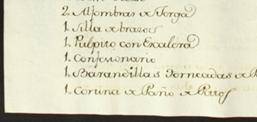 2. Alfombras de Jerga
1. Silla de brazos
1. Pulpito con Escalera
1. Confesonario
1. Barandillas Torneadas de
1. Cortina de Paño de